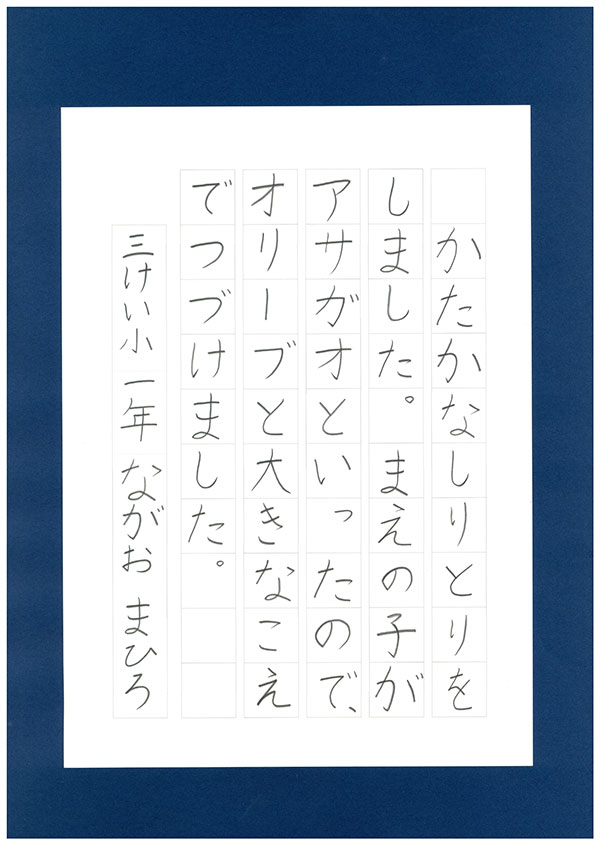 かたかなしりとりを
しました。まえの子が
アサガオといったので、
オリーブと大きなこえ
でつづけました。
三けい小 一年 ながお まひろ